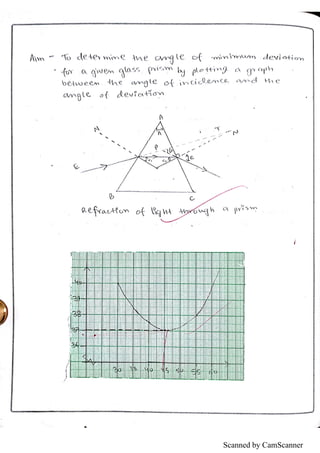 Aim - To determine the angle of minimum deviation
for a given glass prism by plotting a graph
between the angle of incidence and the
angle of deviation
A
A
N
T
N
P
E
B
C
Refraction of light through a prism
40
39
38
37
36
30 35 40 45 50 55 60
Scanned by CamScanner